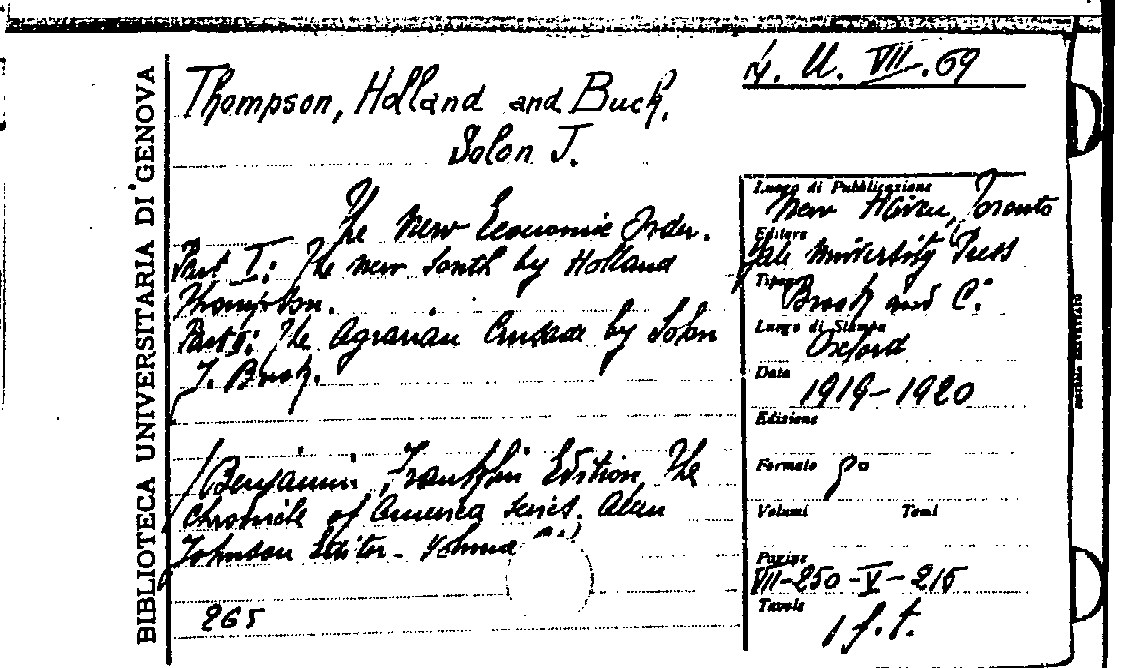 BIBLIOTECA UNIVERSITARIA DI GENOVA
4. U. VII. 69
Thompson, Holland and Buck,
Solon J.
The New Economic Order.
Part I: The New South by Holland
Thompson.
Part II: The Agrarian Crusade by Solon
J. Buck.
(Benjamin Franklin Edition, The
Chronicle of America Series. Alen
Johnson Editor - Volume
265
Luogo di Pubblicazione
New Haven, Toronto
Editore
Yale University Press
Tipogr.
Brook and C.
Luogo di Stampa
Oxford
Data
1919-1920
Edizione
Formato 8°
Volumi Tomi
Pagine
VII-250-V-215
Tavole
1 f.t.